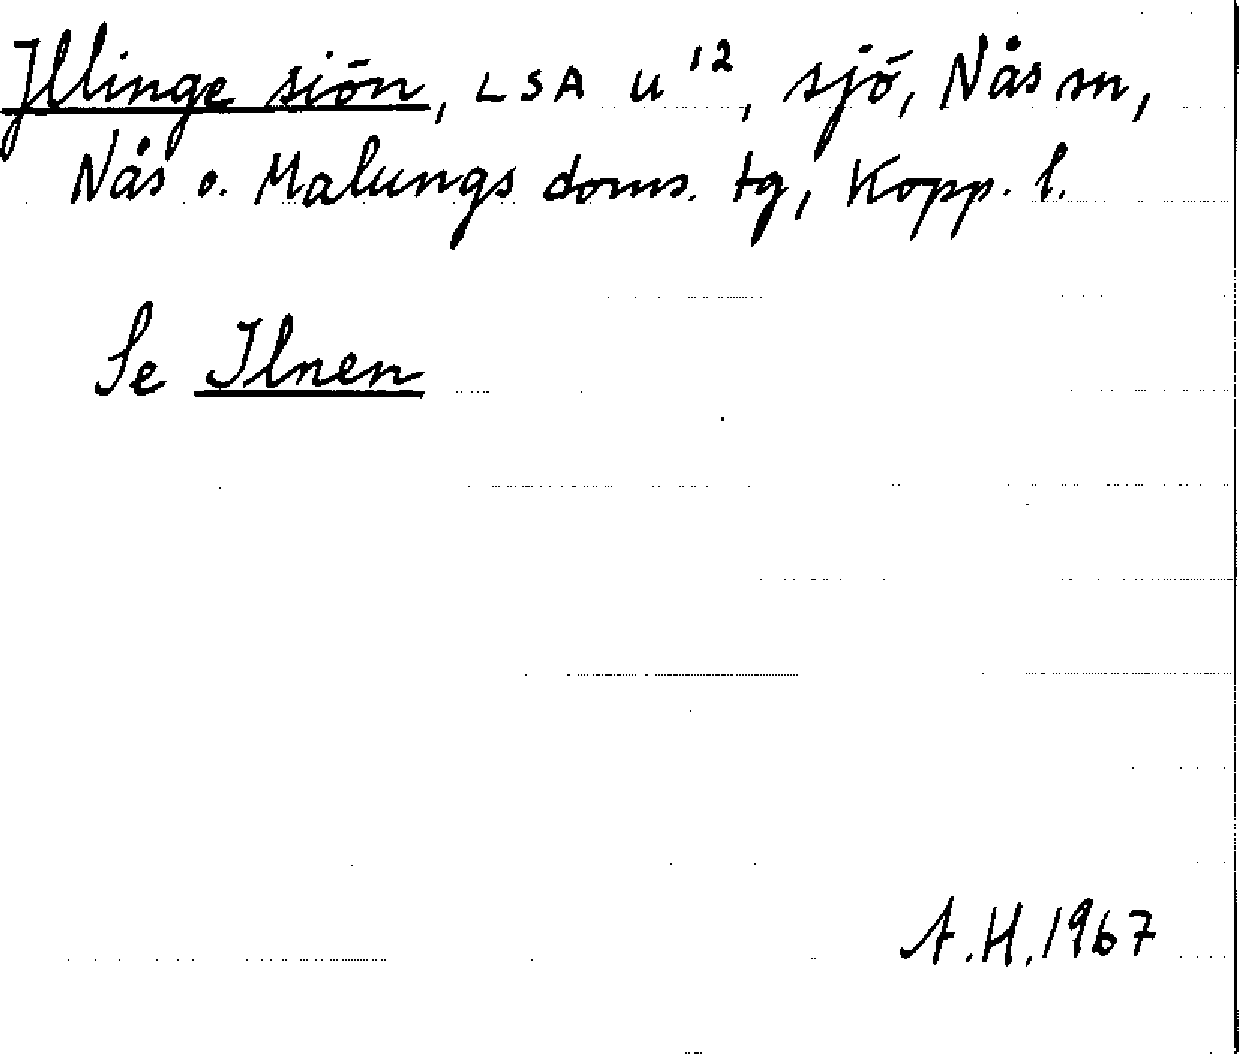 Jllinge siön, LSA U¹², sjö, Nås sn,
Nås o. Malungs doms. tg, Kopp. l.
Se Ilnen
A.H. 1967